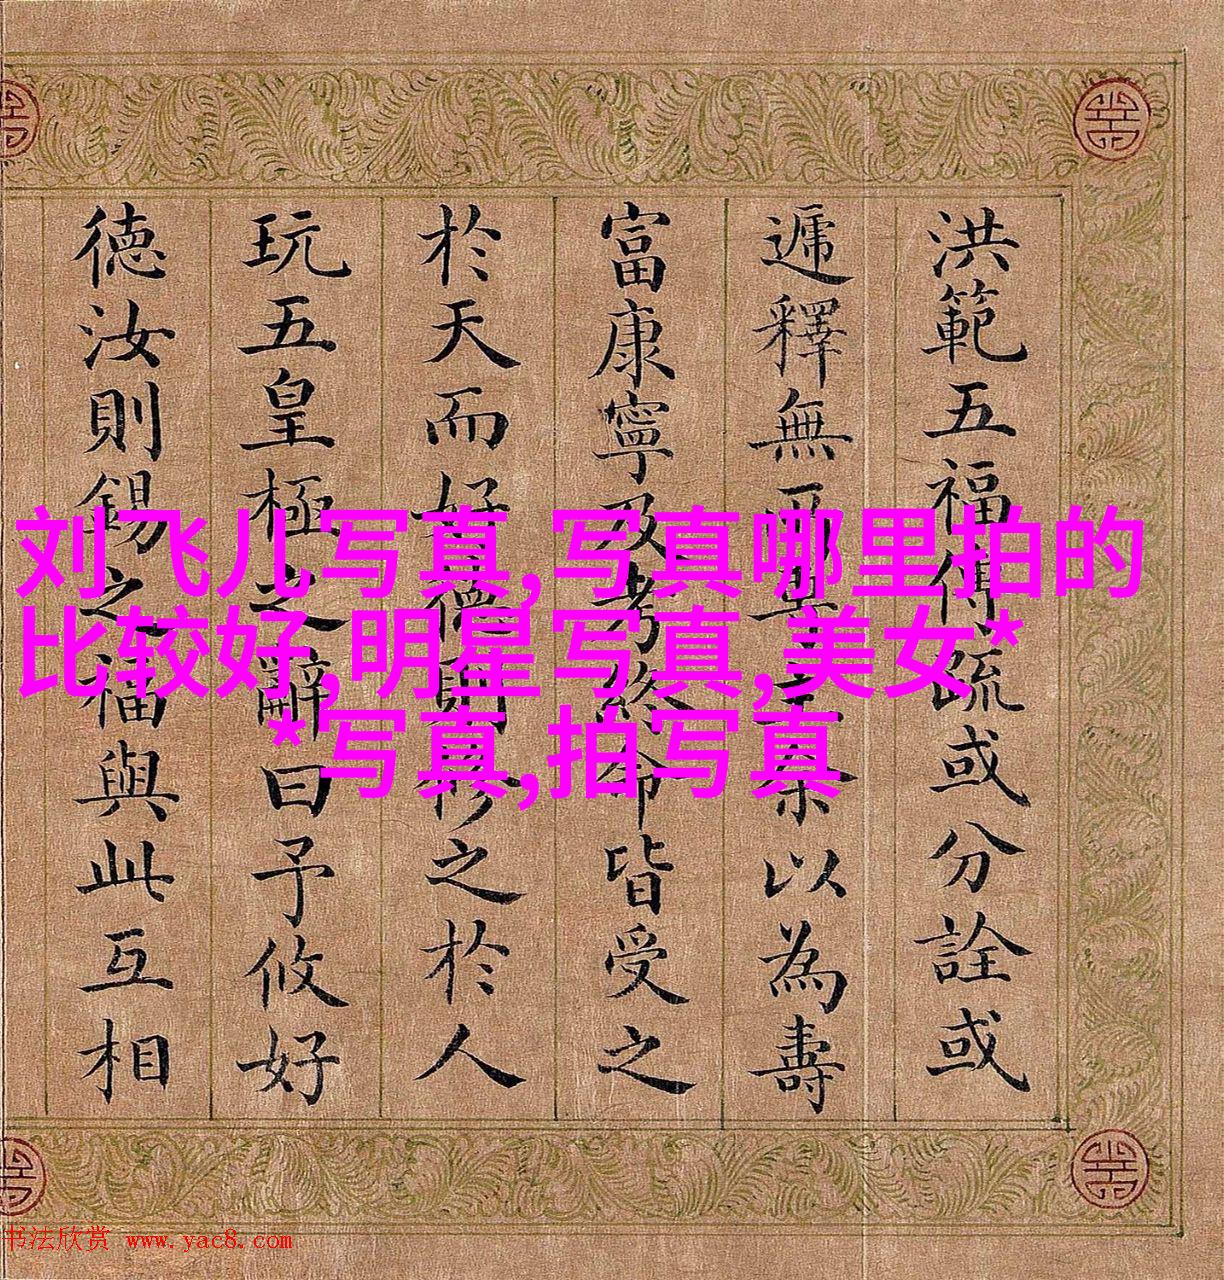 洪範五福傅疏或分詮或
遞釋無以為壽
富康寧及考終命皆受之
於天而好德則修之於人
玩五皇極之辭曰予攸好
德汝則錫之福與此互相
刘飞儿写真,写真哪里拍的
比较好,明星写真,美女*
*写真,拍写真
书法欣赏 www.yac8.com